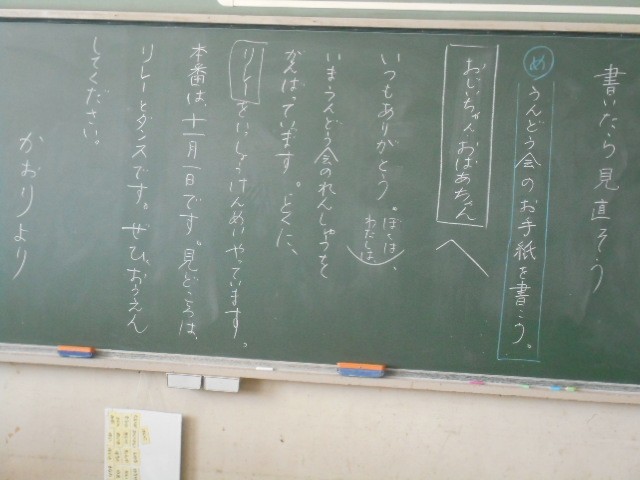 書いたら見直そう
め うんどう会のお手紙を書こう。
おじいちゃん、おばあちゃん へ
いつもありがとう。ぼくは、わたしは、
いまうんどう会のれんしゅうを
がんばっています。とくに、
リレーをいっしょうけんめいやっています。
本番は、十一月一日です。見どころは、
リレーとダンスです。ぜひ、おうえん
してください。
かおりより